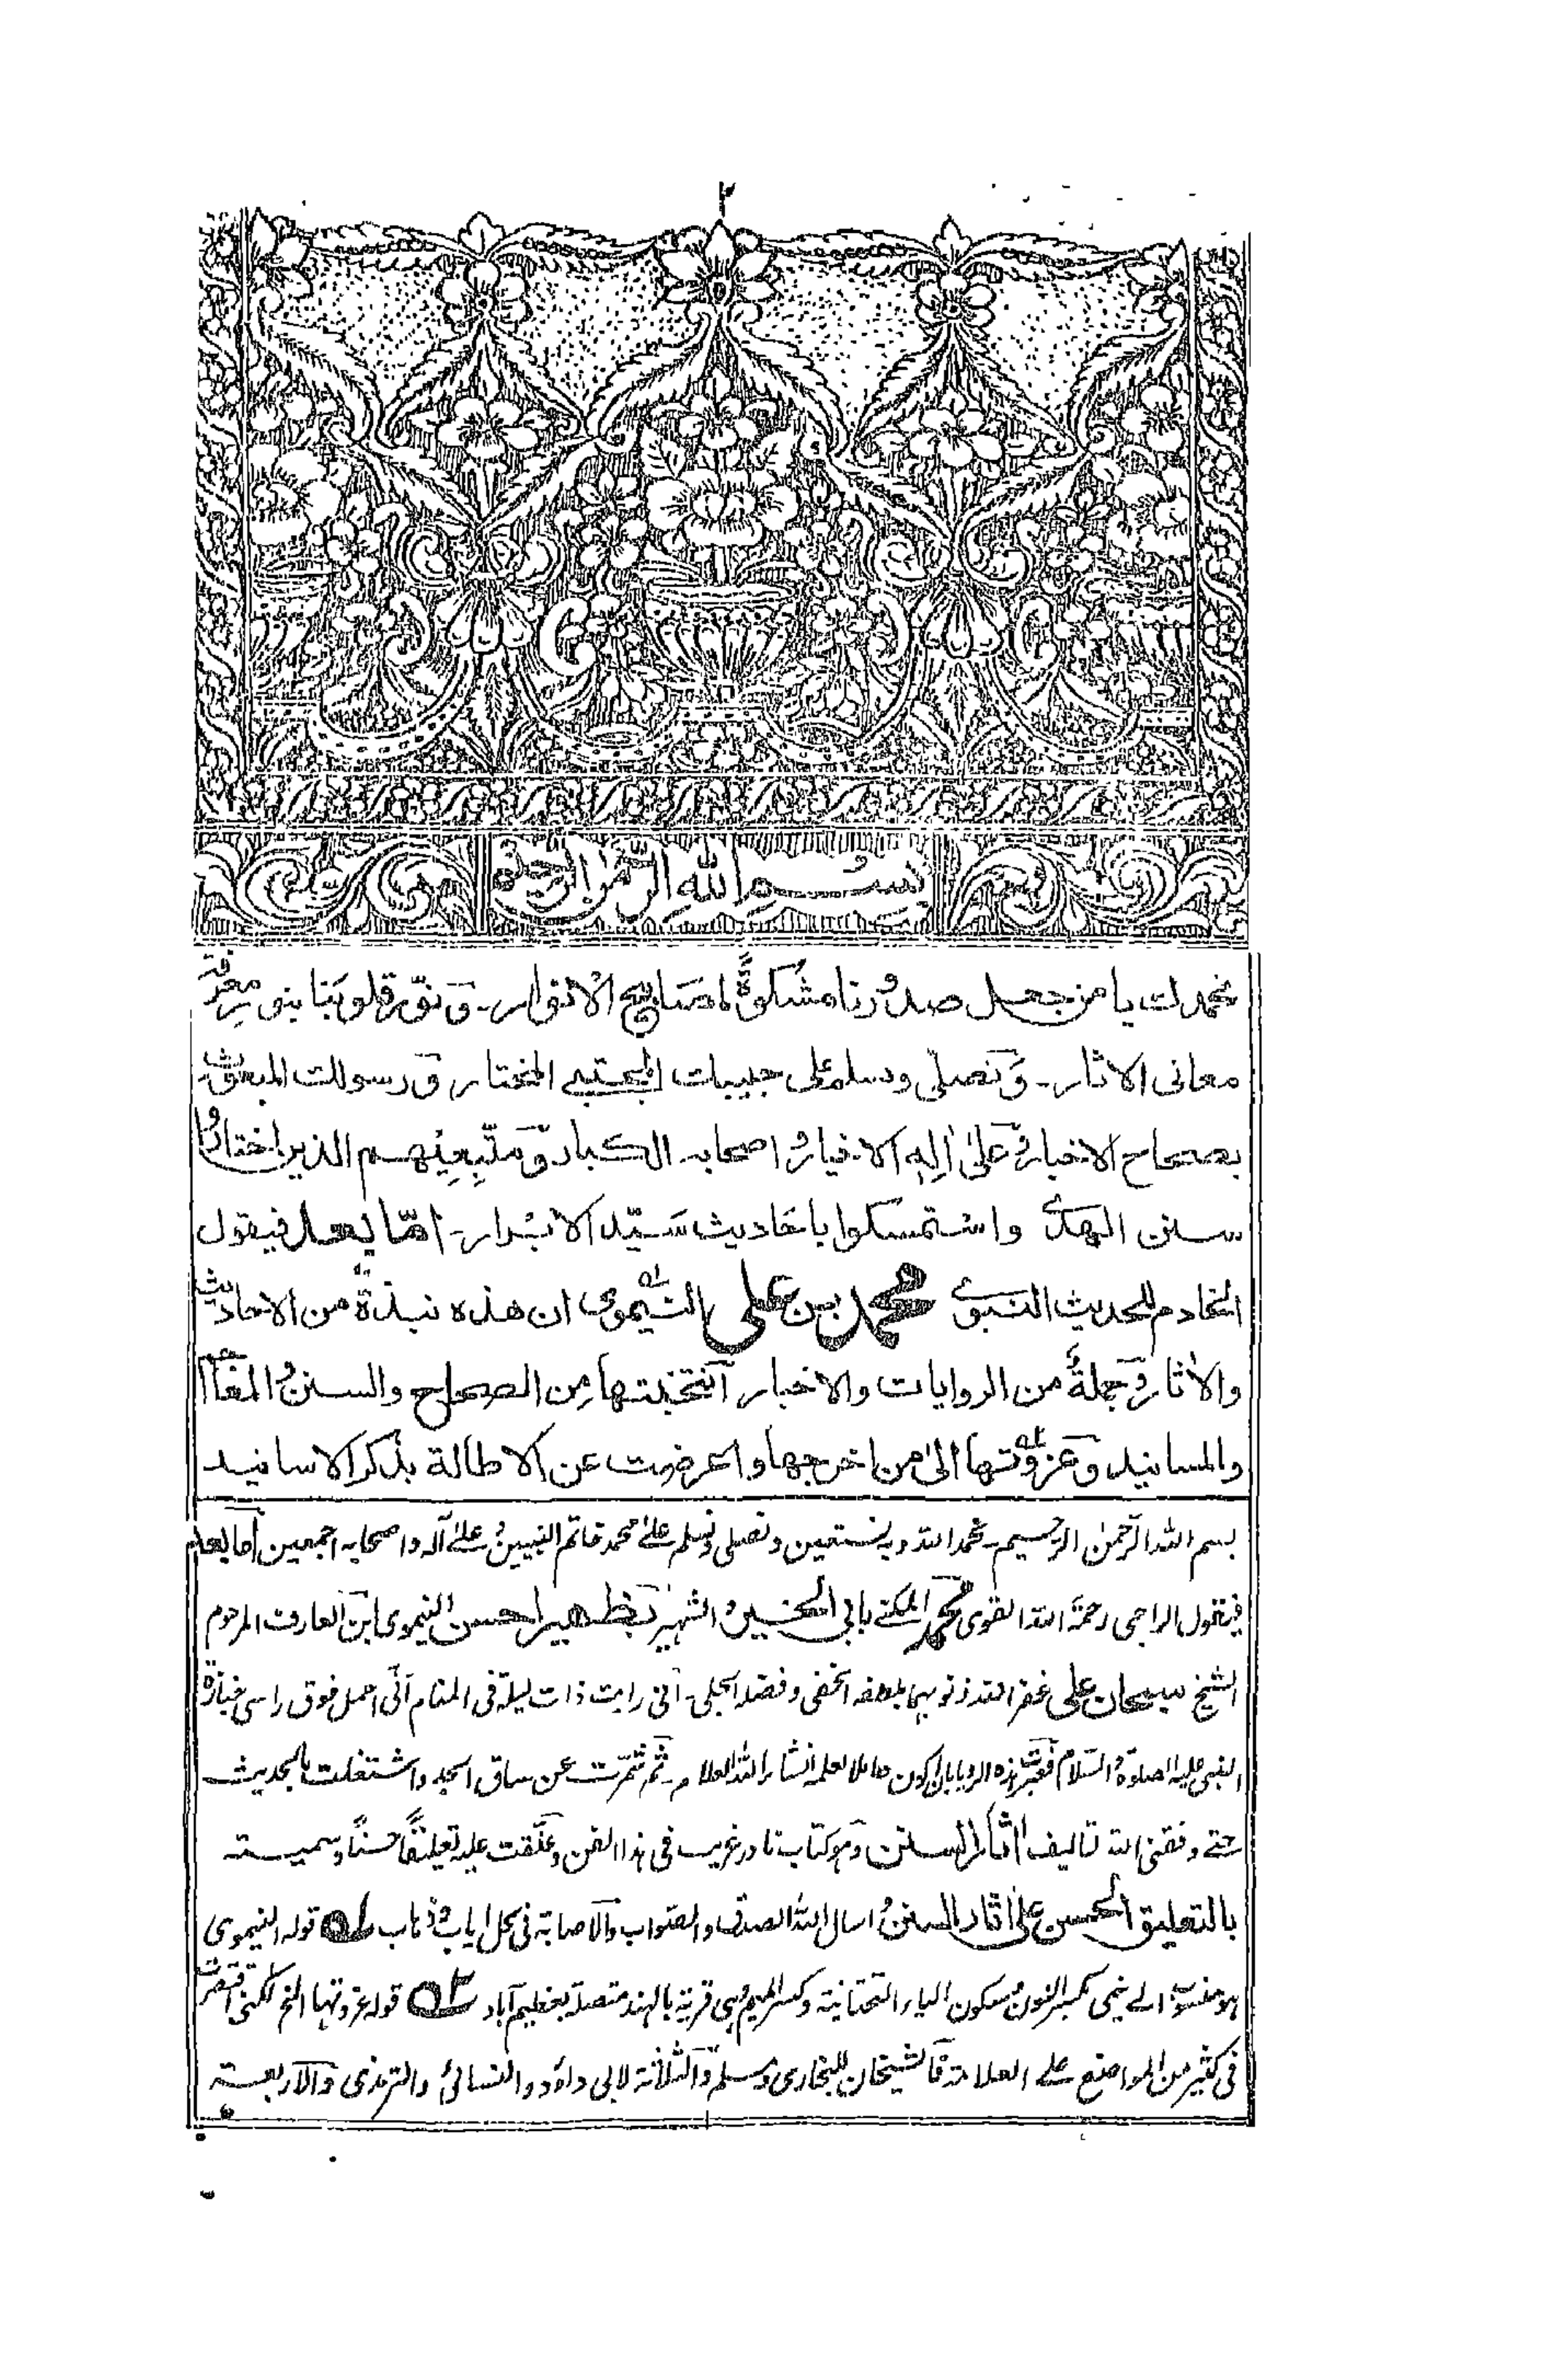 ٢
بسم الله الرحمن الرحيم
نحمدك يا من جعل صدورنا مشكوة لمصابيح الانوار۔ ونور قلوبنا بنور معرفة
معانى الاثار۔ ونصلى ونسلم على حبيبك المجتبى المختار ورسولك المبعوث
بصحاح الاخبار وعلى اله الاخيار واصحابه الكبار ومتبعيهم الذين اختاروا
سنن الهدى واستمسكوا باحاديث سيد الابرار۔ اما بعد فيقول
الخادم للحديث النبوى محمد بن على النيموى ان هذه نبذة من الاحاديث
والاثار وجملة من الروايات والاخبار انتخبتها من الصحاح والسنن والمعاجم
والمسانيد وعزوتها الى من اخرجها واعرضت عن الاطالة بذكر الاسانيد
بسم الله الرحمن الرحيم۔ نحمد الله وبه نستعين ونصلى ونسلم على محمد خاتم النبيين وعلى آله واصحابه اجمعين اما بعد
فيقول الراجى رحمة الله القوى محمد المكنى بابى الخير والشهير بظهير احسن النيموى ابن العارف المرحوم
الشيخ سبحان على غفر الله ذنوبهما بلطفه الخفى وفضله الجلى۔ انى رايت ذات ليلة فى المنام انى احمل فوق راسى جنازة
النبى عليه الصلوة والسلام فعبرت هذه الرويا بان اكون حاملا لعلمه انشاء الله العلام۔ ثم شمرت عن ساق الجد واشتغلت بالحديث
حتى وفقنى الله تاليف اثار السنن وهو كتاب نادر غريب فى هذا الفن وعلقت عليه تعليقا حسنا وسميته
بالتعليق الحسن على اثار السنن واسال الله الصدق والصواب والاصابة فى كل اياب وذهاب ١ـه قوله النيموى
هو منسوب الى نيمى بكسر النون وسكون الياء التحتانية وكسر الميم وهى قرية بالهند متصلة بعظيم آباد ٢ـه قوله عزوتها الخ لكنى اقتصرت
فى كثير من المواضع على العلامة فالشيخان للبخارى ومسلم والثلاثة لابى داؤد والنسائى والترمذى والاربعة